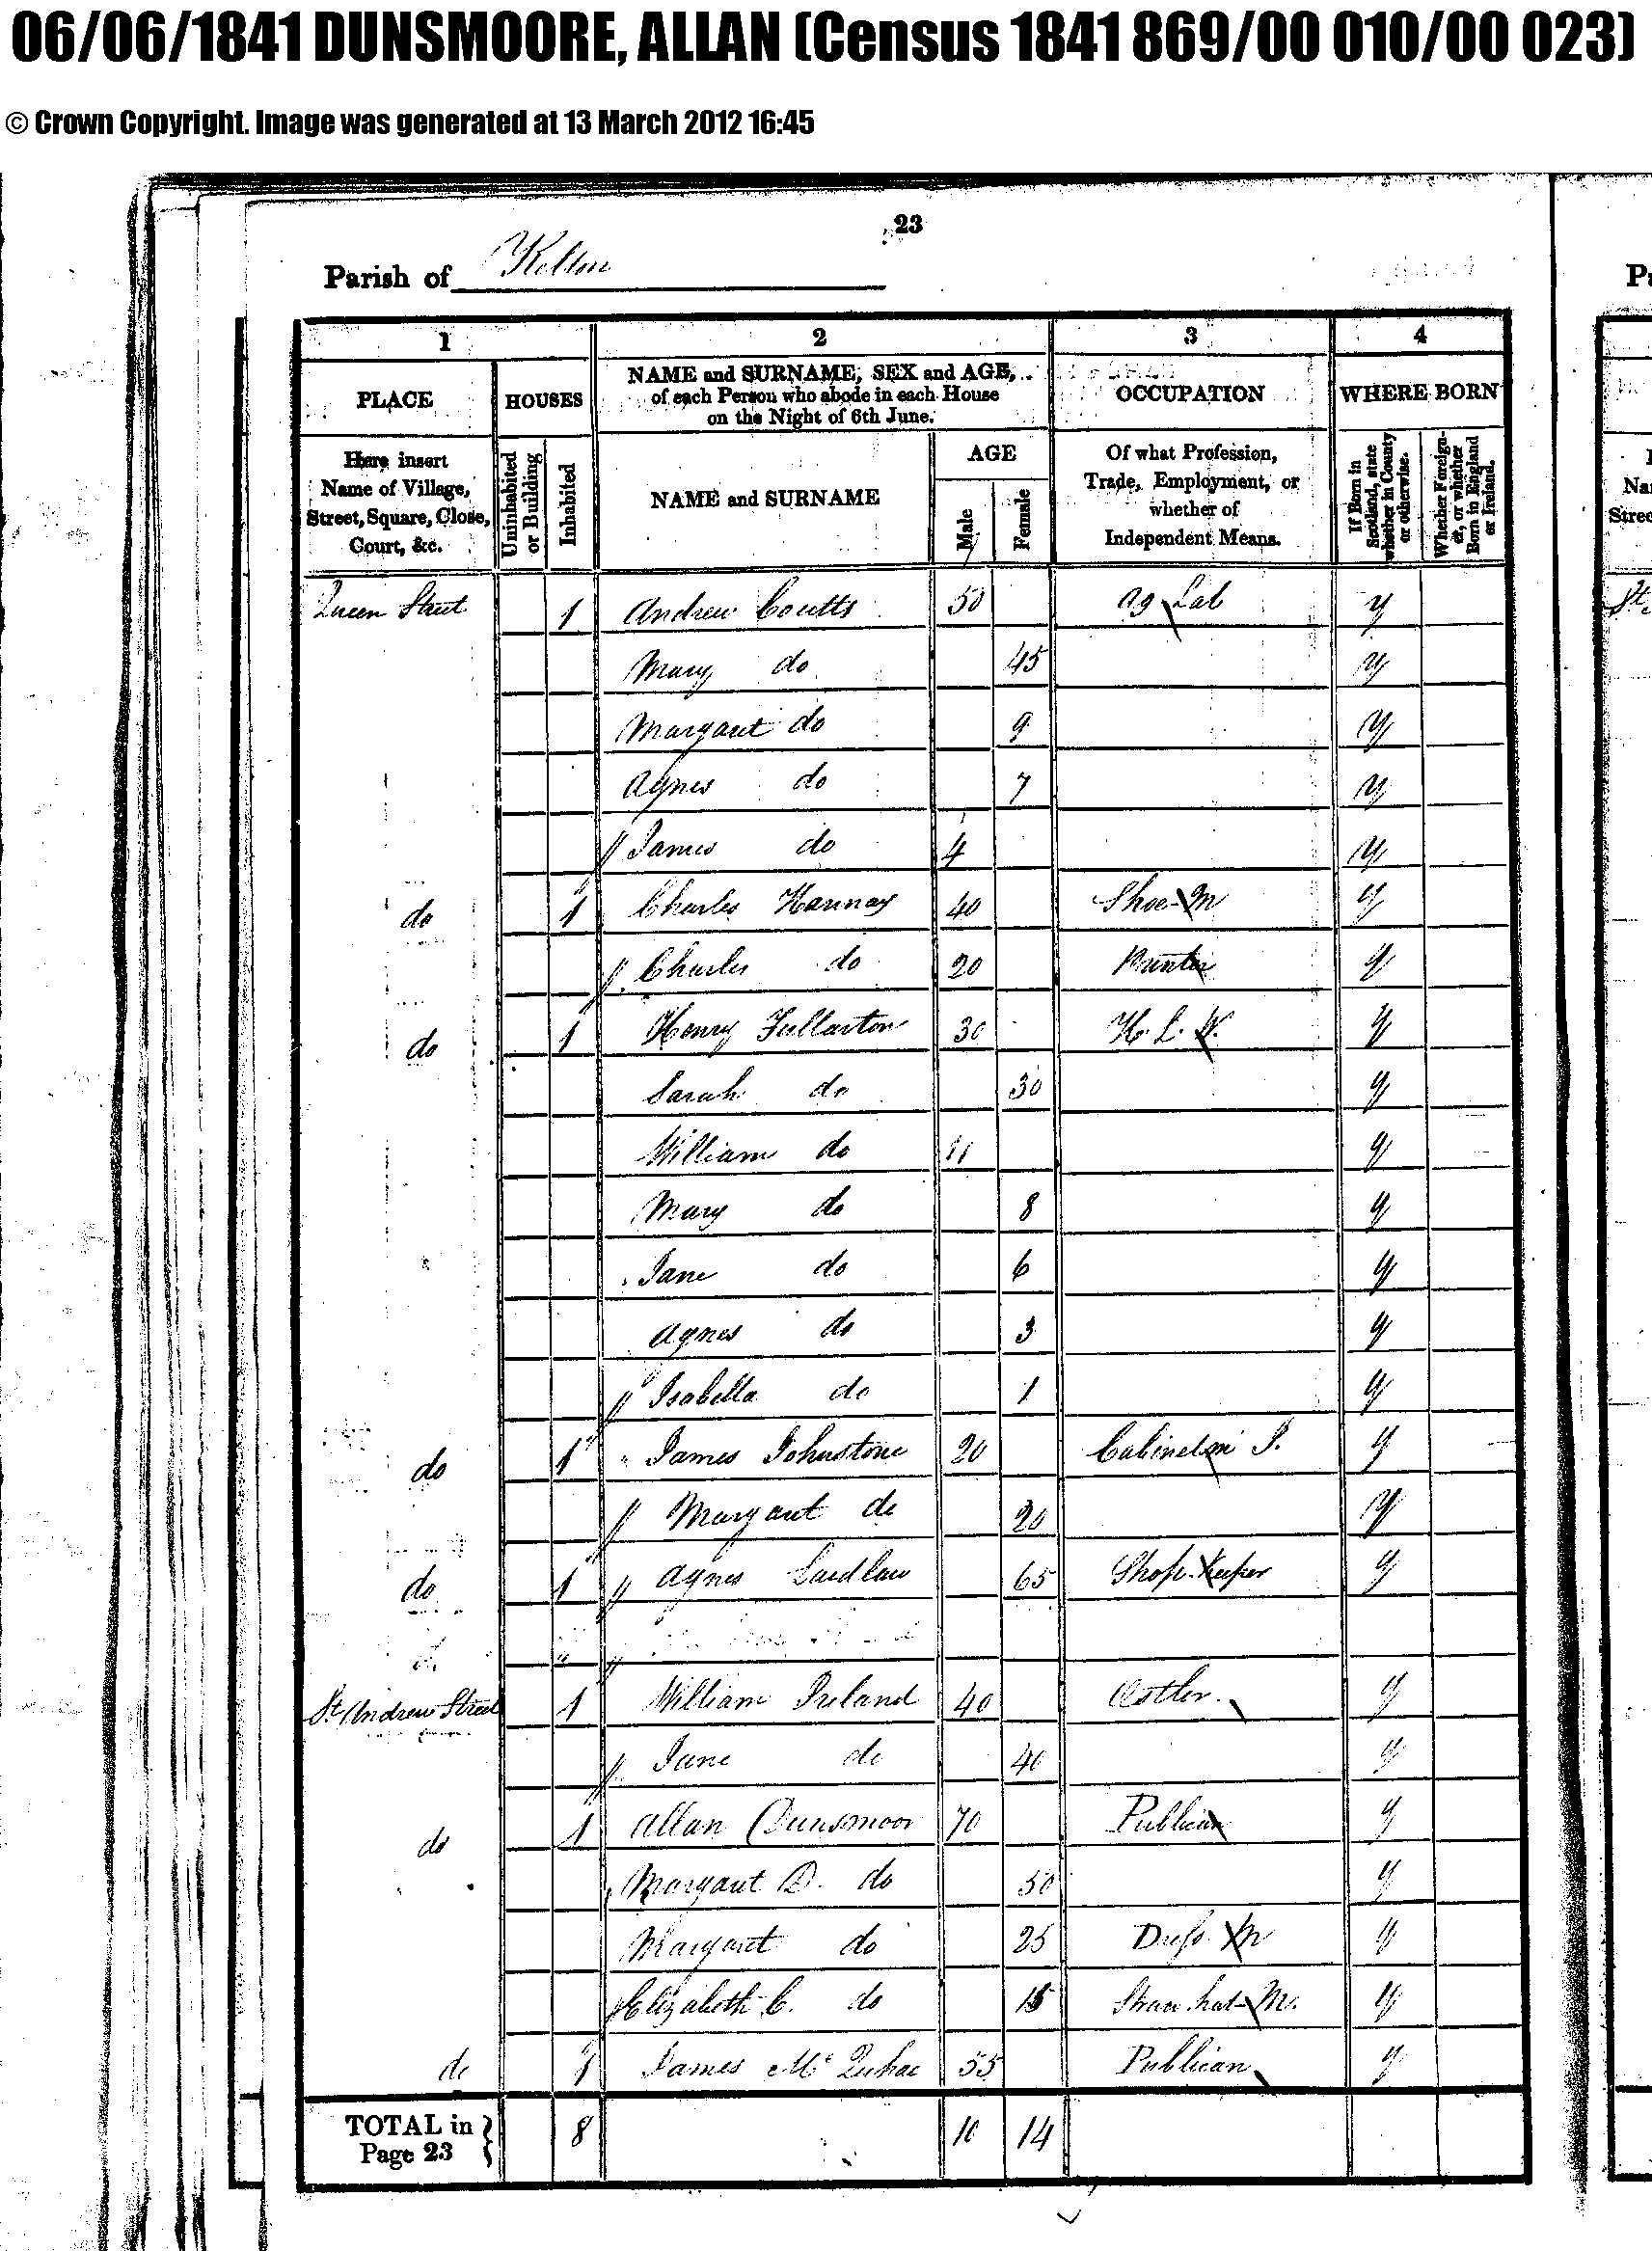 06/06/1841 DUNSMOORE, ALLAN (Census 1841 869/00 010/00 023)
© Crown Copyright. Image was generated at 13 March 2012 16:45
23
Parish of Kelton
1 2 3 4
PLACE HOUSES NAME and SURNAME, SEX and AGE, of each Person who abode in each House on the Night of 6th June. OCCUPATION WHERE BORN
Here insert Name of Village, Street, Square, Close, Court, &c. Uninhabited or Building Inhabited NAME and SURNAME AGE Male Female Of what Profession, Trade, Employment, or whether of Independent Means. If Born in Scotland, state whether in County or otherwise. Whether Foreigner, or whether Born in England or Ireland.
Queen Street 1 Andrew Coutts 50 Ag Lab y
Mary do 45 y
Margaret do 9 y
Agnes do 7 y
// James do 4 y
do 1 Charles Hannay 40 Shoe-M y
// Charles do 20 y
do 1 Henry Fullarton 30 H. L. W. y
Sarah do 30 y
William do 11 y
Mary do 8 y
Jane do 6 y
Agnes do 3 y
// Isabella do 1 y
do 1 James Johnstone 20 Cabinet m J. y
// Margaret do 20 y
do 1 // Agnes Laidlaw 65 Shop-Keeper y
St. Andrew Street 1 William Ireland 40 Ostler. y
// Jane do 40 y
do 1 Allan Dunsmoor 70 Publican y
Margaret D. do 50 y
Margaret do 25 Dress M y
// Elizabeth C. do 15 Straw hat-M. y
do 1 James Mc Quhae 55 Publican y
TOTAL in Page 23 } 8 10 14